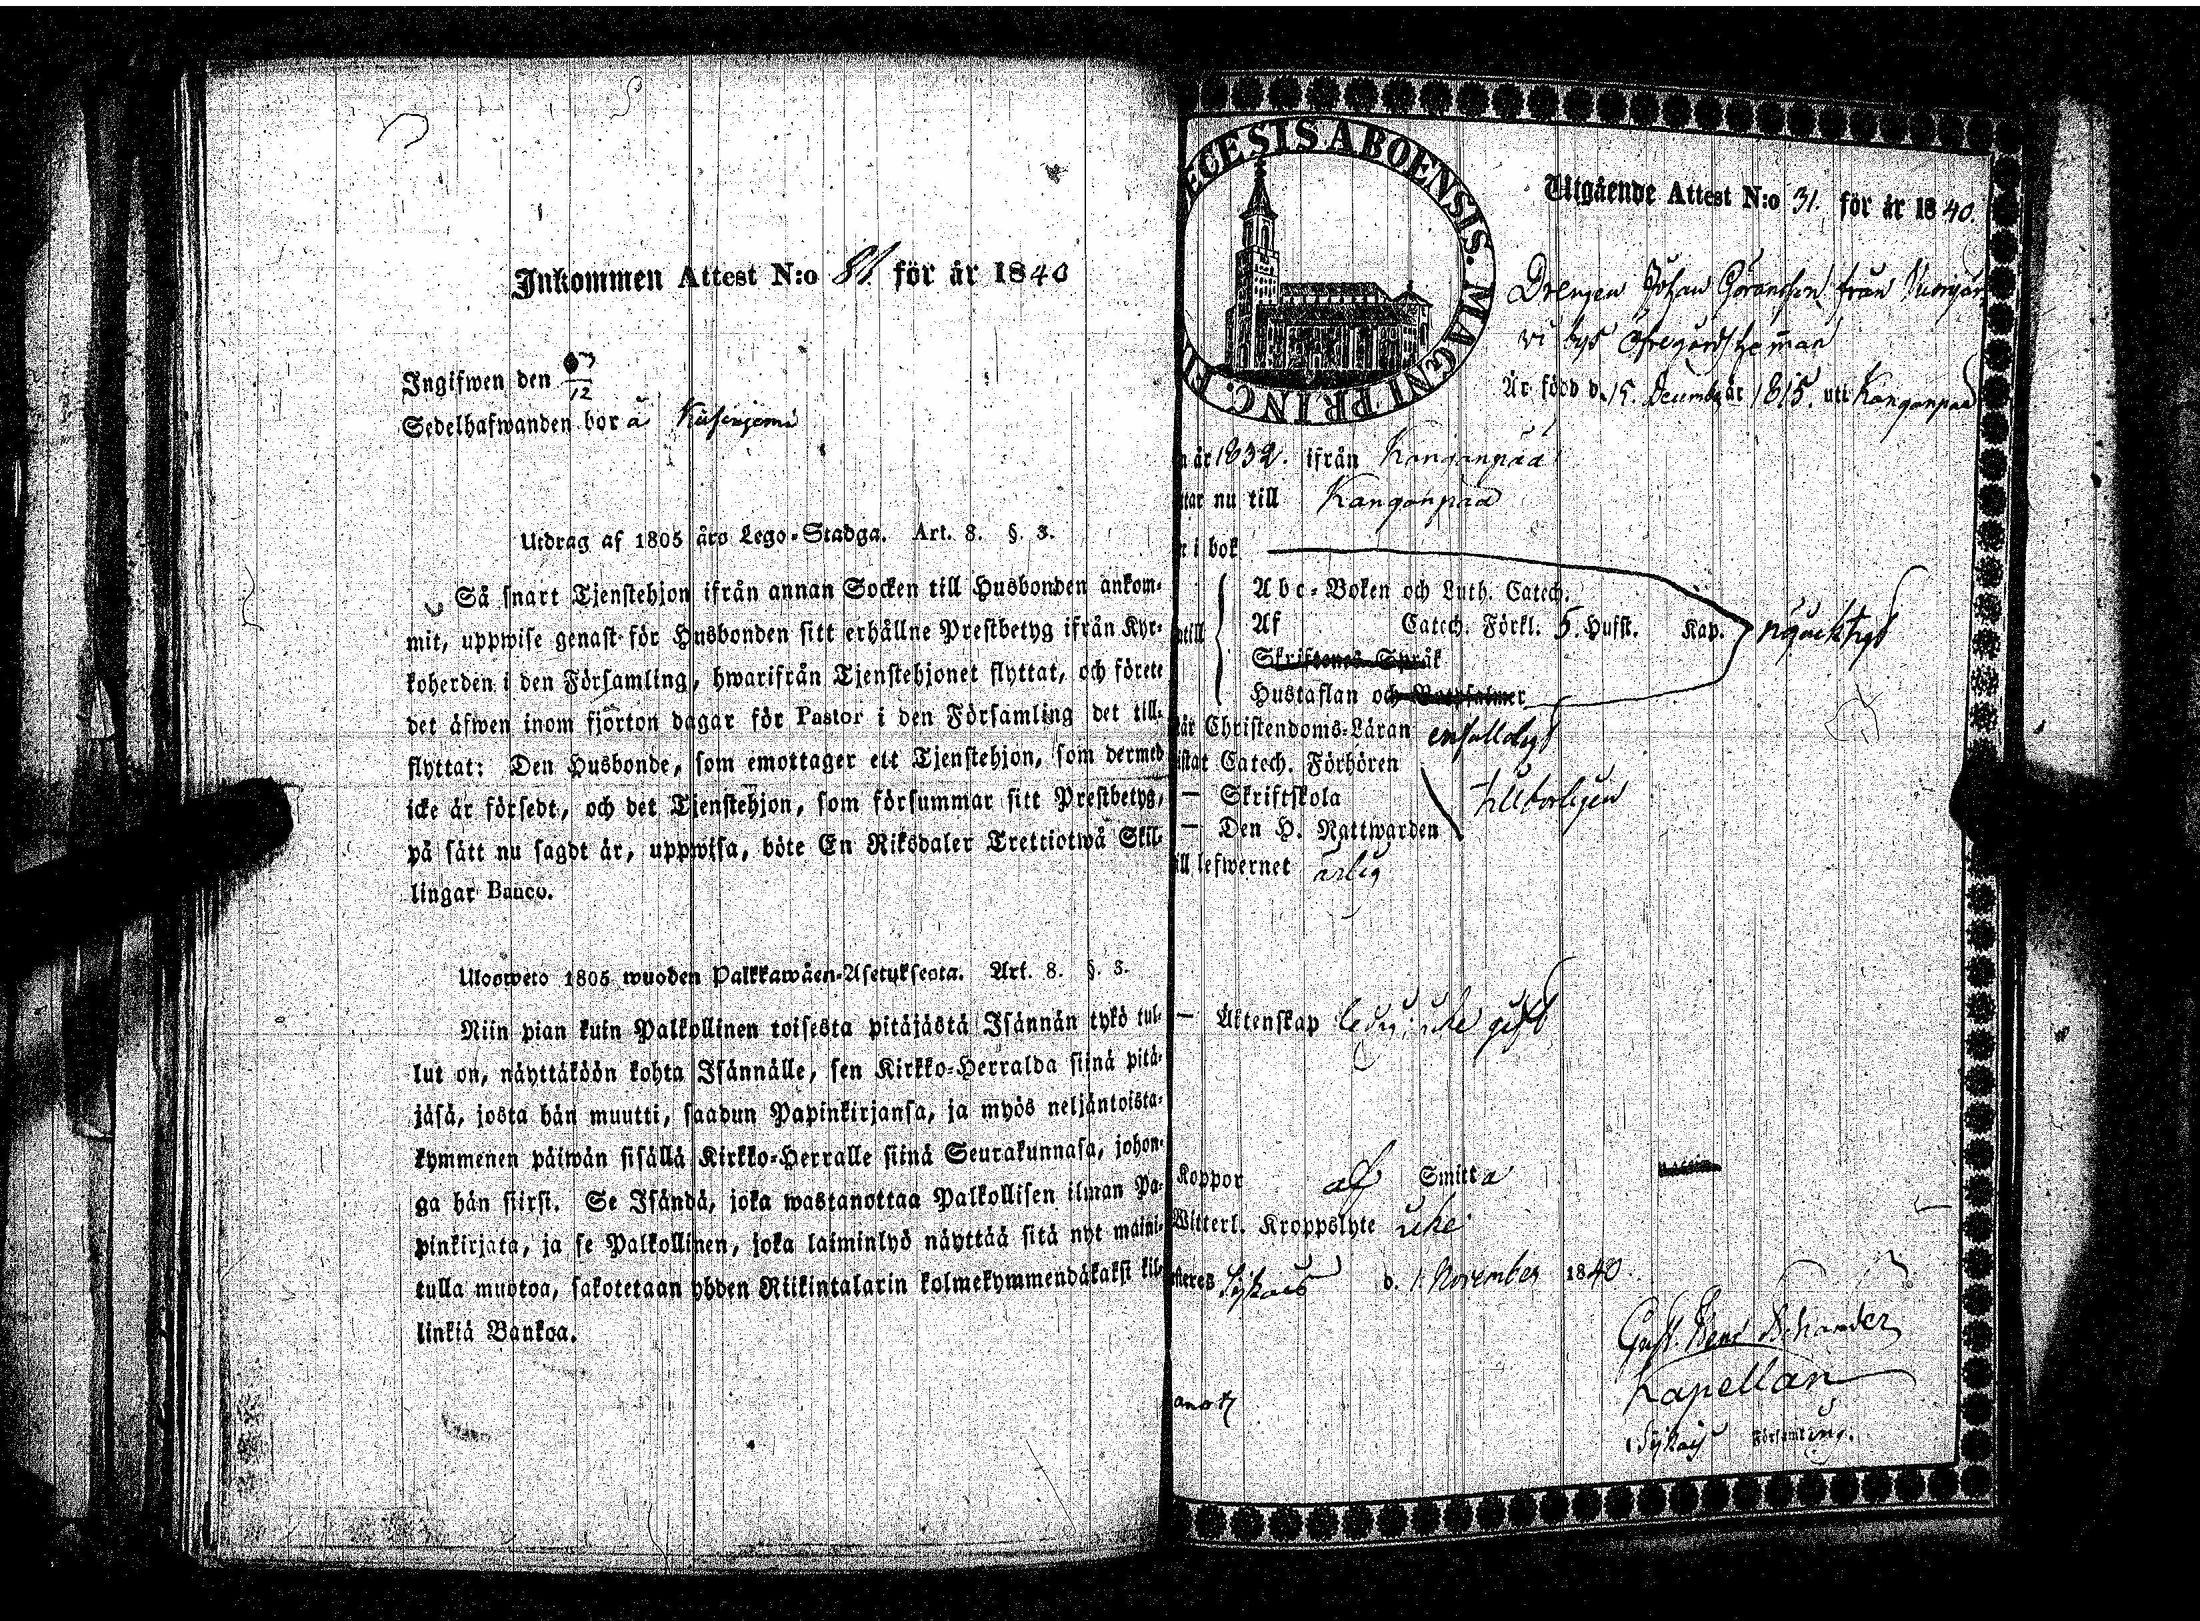 Inkommen Attest N:o 81. för år 1840
Ingifwen den
12
Sedelhafwanden bor å
Utdrag af 1805 års Lego-Stadga. Art. 8. §. 3.
Så snart Tjenstehjon ifrån annan Socken till Husbonden ankom-
mit, uppwise genast för Husbonden sitt erhållne Prestbetyg ifrån Kyr-
koherden i den Församling, hwarifrån Tjenstehjonet flyttat, och förete
det äfwen inom fjorton dagar för Pastor i den Församling det till-
flyttat: Den Husbonde, som emottager ett Tjenstehjon, som dermed
icke är försedt, och det Tjenstehjon, som försummar sitt Prestbetyg,
på sätt nu sagdt är, uppwisa, böte En Riksdaler Trettiotwå Skil-
lingar Banco.
Ulosweto 1805 wuoden Palkkawäen-Asetuksesta. Art. 8. §. 3.
Niin pian kuin Palkollinen toisesta pitäjästä Isännän tykö tul-
lut on, näyttäköön kohta Isännälle, sen Kirkko-Herralda siinä pitä-
jäsä, josta hän muutti, saadun Papinkirjansa, ja myös neljäntoista-
kymmenen päiwän sisällä Kirkko-Herralle siinä Seurakunnasa, johon-
ga hän siirsi. Se Isändä, joka wastanottaa Palkollisen ilman Pa-
pinkirjata, ja se Palkollinen, joka laiminlyö näyttää sitä nyt maini-
tulla muotoa, sakotetaan yhden Riikintalarin kolmekymmendäkaksi kil-
linkiä Bankoa.
ECESIS ABOENSIS. MAGNI PRINC. FI
Utgående Attest N:o 31. för år 1840.
Drengen Johan Göransson från
bys Öfregård hemman
Är född d. 15. December år 1815. uti Kangonpää
n år 1832. ifrån Kangonpää
ttar nu till Kangonpää
n i bok
Abc-Boken och Luth. Catech.
Af Catech. Förkl. 5. Hufst. Kap.
ntill
Skriftenes Språk
Hustaflan och
tår Christendoms-Läran enfaldigt
istat Catech. Förhören
— Skriftskola tillbörligen
— Den H. Nattwarden
ill lefwernet ärlig
— Äktenskap ledig: icke gift
Koppor af Smitta
Witterl. Kroppslyte icke
steres d. 1. November 1840.
Kapellan
Församling.